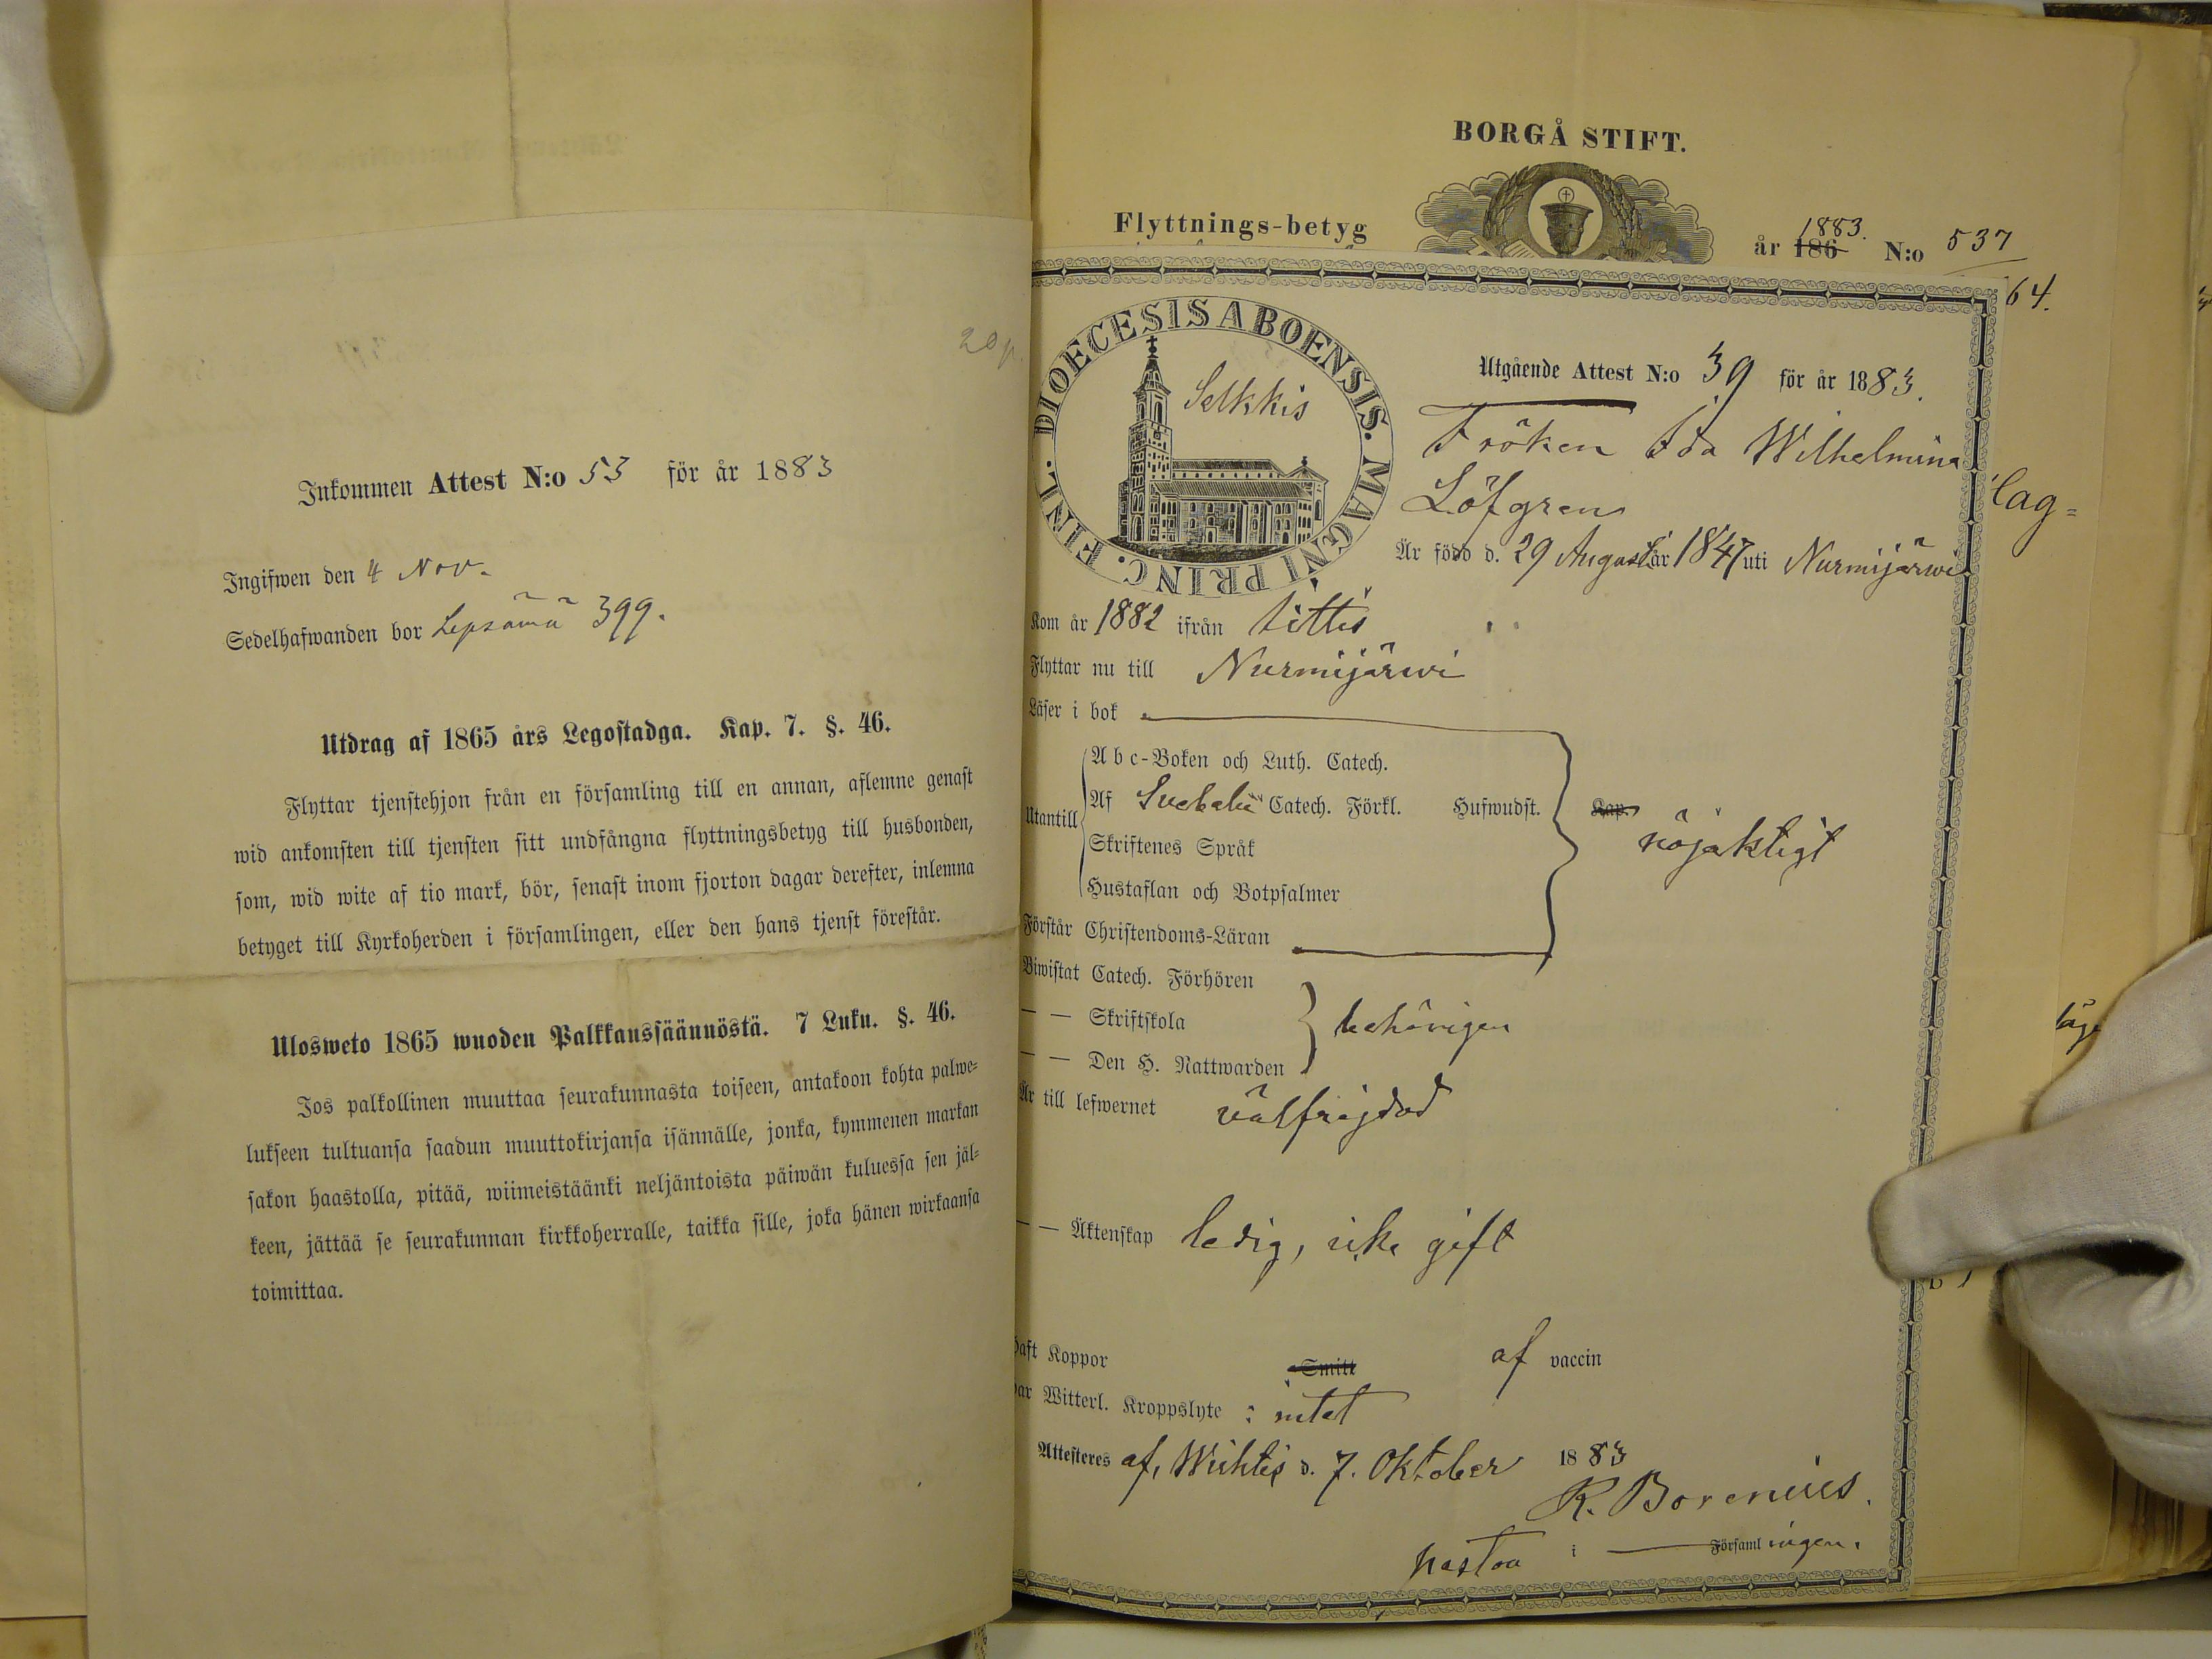 20 p
Inkommen Attest N:o 53 för år 1883
Ingifwen den 4 Nov.
Sedelhafwanden bor Lepsämä 399.
Utdrag af 1865 års Legostadga. Kap. 7. §. 46.
Flyttar tjenstehjon från en församling till en annan, aflemne genast
wid ankomsten till tjensten sitt undfångna flyttningsbetyg till husbonden,
som, wid wite af tio mark, bör, senast inom fjorton dagar derefter, inlemna
betyget till Kyrkoherden i församlingen, eller den hans tjenst förestår.
Ulosweto 1865 wuoden Palkkaussäännöstä. 7 Luku. §. 46.
Jos palkollinen muuttaa seurakunnasta toiseen, antakoon kohta palwe=
lukseen tultuansa saadun muuttokirjansa isännälle, jonka, kymmenen markan
sakon haastolla, pitää, wiimeistäänki neljäntoista päiwän kuluessa sen jäl=
keen, jättää se seurakunnan kirkkoherralle, taikka sille, joka hänen wirkaansa
toimittaa.
BORGÅ STIFT.
Flyttnings-betyg år 186 1883. N:o 537
64.
lag=
DIOECESIS ABOENSIS. MAGNI PRINC. FINL.
Selkkis
Utgående Attest N:o 39 för år 1883.
Fröken Ida Wilhelmina
Löfgren
Är född d. 29 August år 1847 uti Nurmijärwi
Kom år 1882 ifrån Iittis
Flyttar nu till Nurmijärwi
Läser i bok
Utantill
A b c-Boken och Luth. Catech.
Af Svebelii Catech. Förkl. Hufwudst. Kap.
nöjaktigt
Skriftenes Språk
Hustaflan och Botpsalmer
Förstår Christendoms-Läran
Biwistat Catech. Förhören
— — Skriftskola
behörigen
— — Den H. Nattwarden
Är till lefwernet välfräjdad
— — Äktenskap ledig, icke gift
Haft Koppor Smitt af vaccin
Har Witterl. Kroppslyte : intet
Attesteres af, Wichtis d. 7. Oktober 1883
R. Borenius.
pastor i Församlingen.